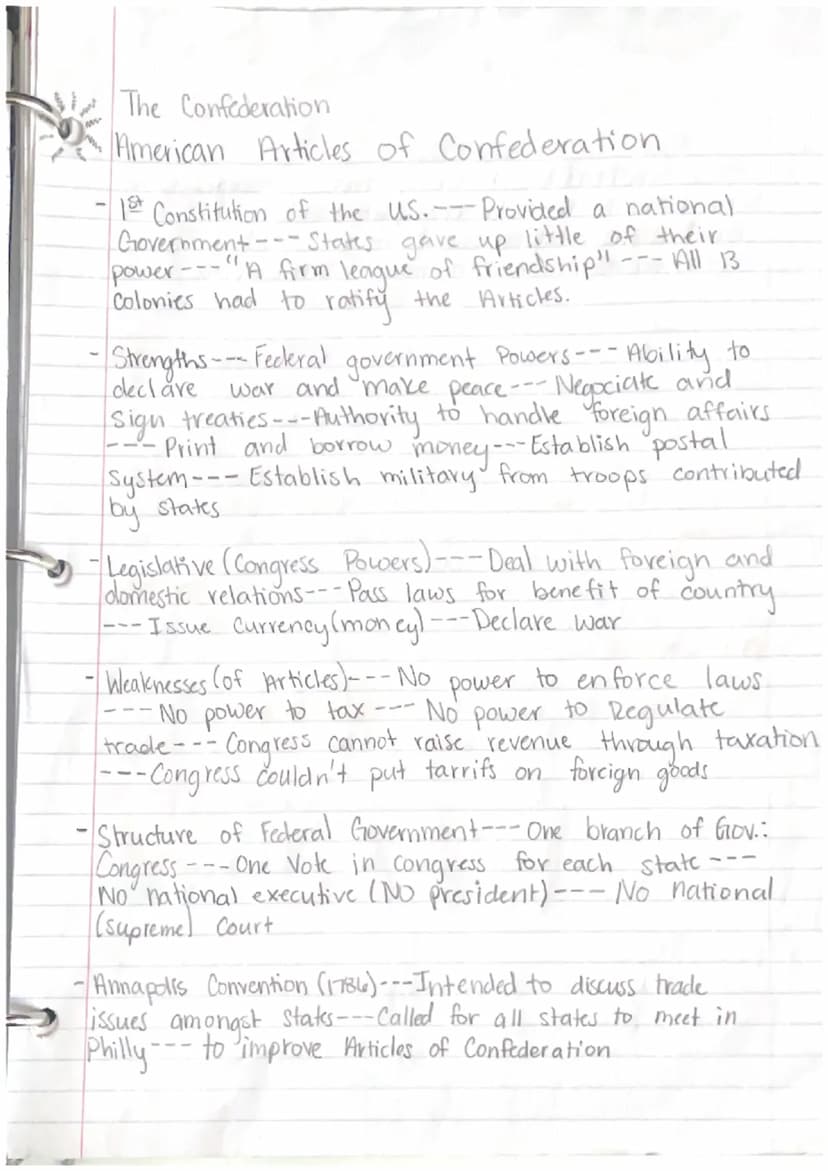 The Confederation
American Articles of Confederation
- 1st Constitution of the U.S.--- Provided a national
Government--- States gave up little of their
power---"A firm league of friendship" --- All 13
Colonies had to ratify the Articles.
- Strengths--- Federal government Powers--- Ability to
declare war and make peace--- Negociate and
Sign treaties---Authority to handle foreign affairs
--- Print and borrow money---Establish postal
System--- Establish military from troops contributed
by states
- Legislative (Congress Powers)---Deal with foreign and
domestic relations---Pass laws for benefit of country
---Issue Currency(money)---Declare War
- Weaknesses (of Articles)---No power to enforce laws
---No power to tax --- No power to Regulate
trade--- Congress cannot raise revenue through taxation
---Congress couldn't put tarrifs on foreign goods
- Structure of Federal Government---One branch of Gov.:
Congress ---One Vote in congress for each state ---
No national executive (No president)--- No national
(supreme) Court
- Annapolis Convention (1786)---Intended to discuss trade
issues amongst States---Called for all states to meet in
Philly--- to improve Articles of Confederation